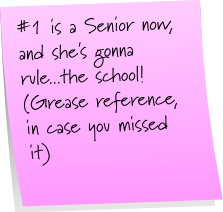 #1 is a Senior now,
and she's gonna
rule...the school!
(Grease reference,
in case you missed
it)